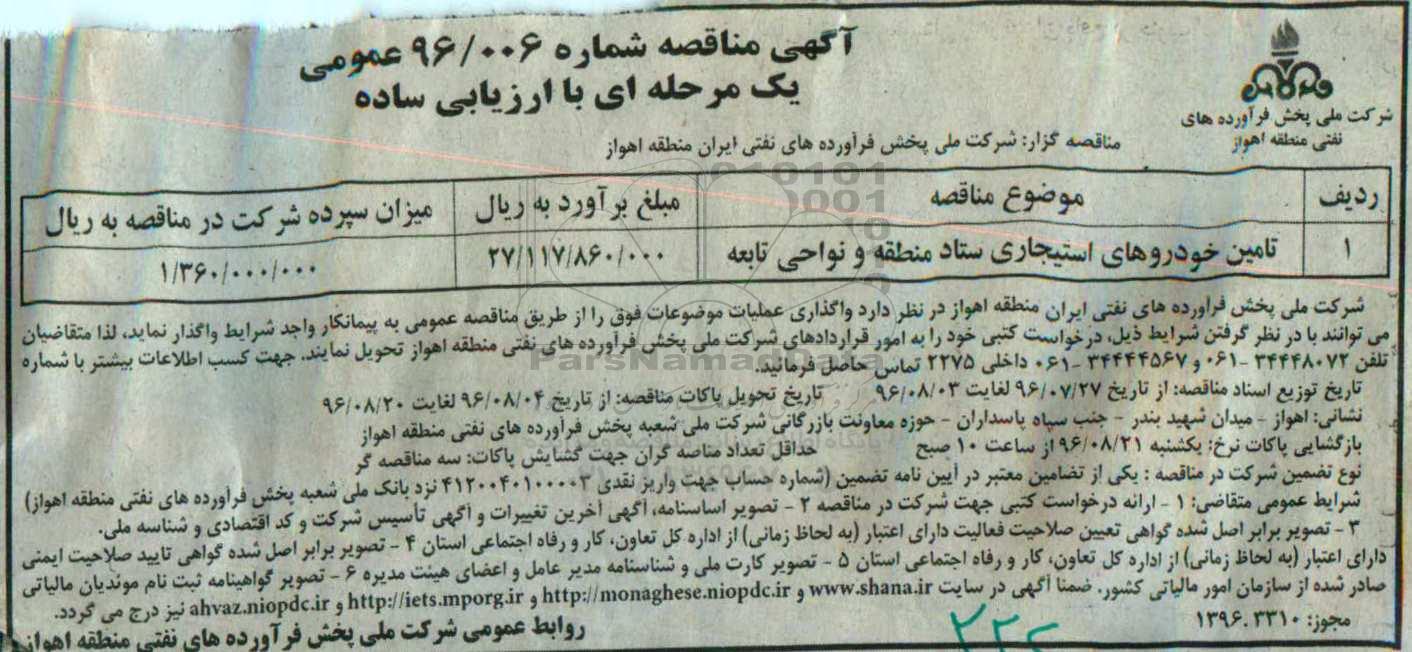 آگهی مناقصه شماره ۹۶/۰۰۶ عمومی
یک مرحله ای با ارزیابی ساده
شرکت ملی پخش فرآورده های
نفتی منطقه اهواز
مناقصه گزار: شرکت ملی پخش فرآورده های نفتی ایران منطقه اهواز
ردیف موضوع مناقصه مبلغ برآورد به ریال میزان سپرده شرکت در مناقصه به ریال
۱ تامین خودروهای استیجاری ستاد منطقه و نواحی تابعه ۲۷/۱۱۷/۸۶۰/۰۰۰ ۱/۳۶۰/۰۰۰/۰۰۰
شرکت ملی پخش فراورده های نفتی ایران منطقه اهواز در نظر دارد واگذاری عملیات موضوعات فوق را از طریق مناقصه عمومی به پیمانکار واجد شرایط واگذار نماید، لذا متقاضیان
می توانند با در نظر گرفتن شرایط ذیل، درخواست کتبی خود را به امور قراردادهای شرکت ملی پخش فرآورده های نفتی منطقه اهواز تحویل نمایند. جهت کسب اطلاعات بیشتر با شماره
تلفن ۳۴۴۴۸۰۷۲ -۰۶۱ و ۳۴۴۴۴۵۶۷ -۰۶۱ داخلی ۲۲۷۵ تماس حاصل فرمائید.
تاریخ توزیع اسناد مناقصه: از تاریخ ۹۶/۰۷/۲۷ لغایت ۹۶/۰۸/۰۳ تاریخ تحویل پاکات مناقصه: از تاریخ ۹۶/۰۸/۰۴ لغایت ۹۶/۰۸/۲۰
نشانی: اهواز - میدان شهید بندر - جنب سپاه پاسداران - حوزه معاونت بازرگانی شرکت ملی شعبه پخش فرآورده های نفتی منطقه اهواز
بازگشایی پاکات نرخ: یکشنبه ۹۶/۰۸/۲۱ از ساعت ۱۰ صبح حداقل تعداد مناصه گران جهت گشایش پاکات: سه مناقصه گر
نوع تضمین شرکت در مناقصه : یکی از تضامین معتبر در آیین نامه تضمین (شماره حساب جهت واریز نقدی ۴۱۲۰۰۴۰۱۰۰۰۰۳ نزد بانک ملی شعبه پخش فرآورده های نفتی منطقه اهواز)
شرایط عمومی متقاضی: ۱ - ارائه درخواست کتبی جهت شرکت در مناقصه ۲ - تصویر اساسنامه، آگهی آخرین تغییرات و آگهی تأسیس شرکت و کد اقتصادی و شناسه ملی.
۳ - تصویر برابر اصل شده گواهی تعیین صلاحیت فعالیت دارای اعتبار (به لحاظ زمانی) از اداره کل تعاون، کار و رفاه اجتماعی استان ۴ - تصویر برابر اصل شده گواهی تایید صلاحیت ایمنی
دارای اعتبار (به لحاظ زمانی) از اداره کل تعاون، کار و رفاه اجتماعی استان ۵ - تصویر کارت ملی و شناسنامه مدیر عامل و اعضای هیئت مدیره ۶ - تصویر گواهینامه ثبت نام موندیان مالیاتی
صادر شده از سازمان امور مالیاتی کشور. ضمنا آگهی در سایت www.shana.ir و http://monaghese.niopdc.ir و http://iets.mporg.ir و ahvaz.niopdc.ir نیز درج می گردد.
مجوز: ۱۳۹۶.۳۳۱۰
روابط عمومی شرکت ملی پخش فرآورده های نفتی منطقه اهواز
ParsNamadData